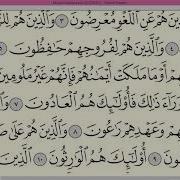 هُمْ عَنِ ٱللَّغْوِ مُعْرِضُونَ ٣ وَٱلَّذِينَ هُمْ
٤ وَٱلَّذِينَ هُمْ لِفُرُوجِهِمْ حَٰفِظُونَ
أَوْ مَا مَلَكَتْ أَيْمَٰنُهُمْ فَإِنَّهُمْ غَيْرُ مَلُومِينَ
وَرَآءَ ذَٰلِكَ فَأُو۟لَٰٓئِكَ هُمُ ٱلْعَادُونَ ٧
وَعَهْدِهِمْ رَٰعُونَ ٨ وَٱلَّذِينَ هُمْ عَلَىٰ
٩ أُو۟لَٰٓئِكَ هُمُ ٱلْوَٰرِثُونَ ١٠ ٱلَّذِينَ